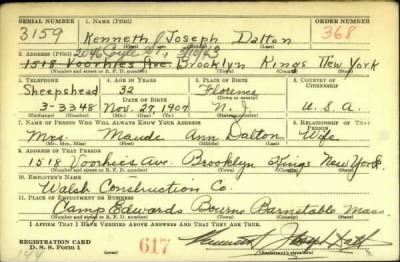 SERIAL NUMBER 1. NAME (Print) ORDER NUMBER
3159 Kenneth Joseph Dalton 368
2. ADDRESS (Print) 2046
1518 Voorhies Ave. Brooklyn Kings New York
(Number and street or R. F. D. number) (Town) (County) (State)
3. TELEPHONE 4. AGE IN YEARS 5. PLACE OF BIRTH 6. COUNTRY OF CITIZENSHIP
Sheepshead 32 Florence
DATE OF BIRTH (Town or county)
3-3348 Nov. 27, 1907 N. J. U. S. A.
(Exchange) (Number) (Mo.) (Day) (Yr.) (State or country)
7. NAME OF PERSON WHO WILL ALWAYS KNOW YOUR ADDRESS 8. RELATIONSHIP OF THAT PERSON
Mrs. Maude Ann Dalton Wife
(Mr., Mrs., Miss) (First) (Middle) (Last)
9. ADDRESS OF THAT PERSON
1518 Voorhies Ave. Brooklyn Kings New York
(Number and street or R. F. D. number) (Town) (County) (State)
10. EMPLOYER'S NAME
Walsh Construction Co.
11. PLACE OF EMPLOYMENT OR BUSINESS
Camp Edwards Bourne Barnstable Mass.
(Number and street or R. F. D. number) (Town) (County) (State)
I AFFIRM THAT I HAVE VERIFIED ABOVE ANSWERS AND THAT THEY ARE TRUE.
REGISTRATION CARD
D. S. S. Form 1 617